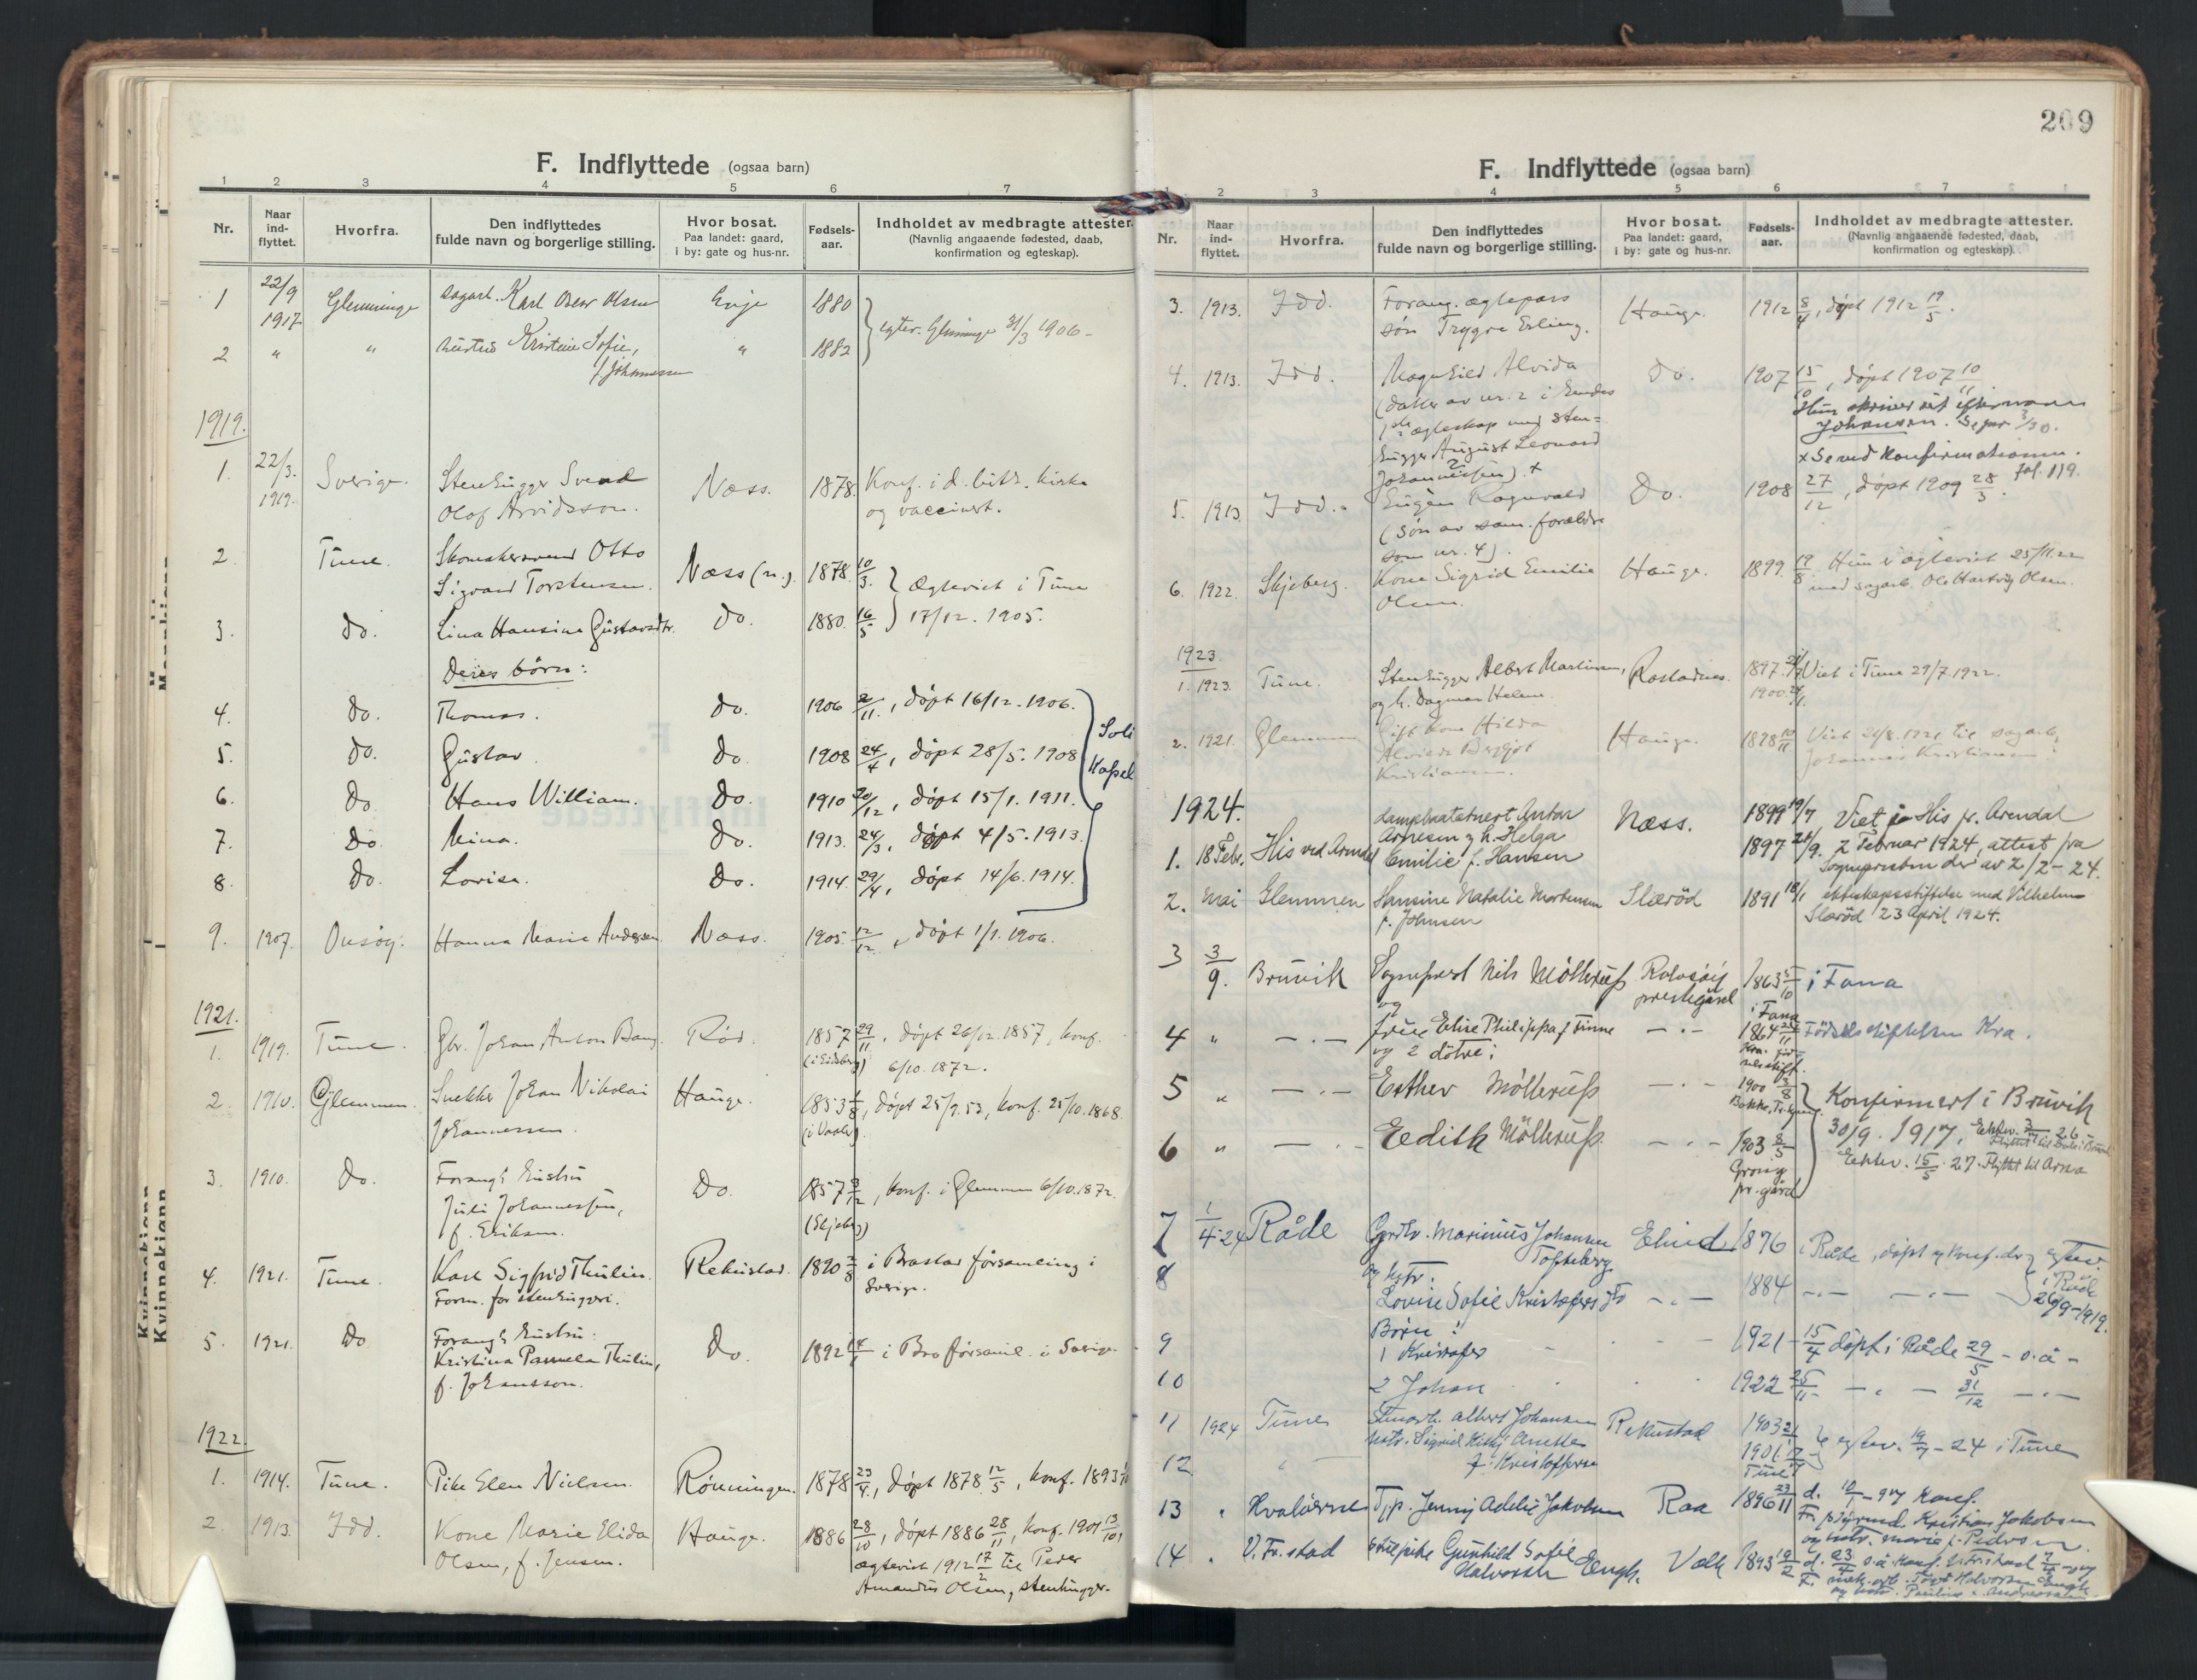 F. Indflyttede (ogsaa barn)
1 2 3 4 5 6 7
Nr.
Naar ind-flyttet.
Hvorfra.
Den indflyttedes fulde navn og borgerlige stilling.
Hvor bosat. Paa landet: gaard, i by: gate og hus-nr.
Fødsels-aar.
Indholdet av medbragte attester. (Navnlig angaaende fødested, daab, konfirmation og egteskap).
1 22/9 1917 Glemminge sagarb. Karl Oscar Olsen Evje 1880
2 " " hustru Kristine Sofie, " 1882 egtev. Glemminge 31/3 1906
f. Johannessen
1919.
1. 22/3. 1919. Sverige. Stenhugger Svend Næss. 1878. Konf. i d. luth. kirke
Olof Arvidsson. og vaccinert.
2. Tune. Skomakersvend Otto
Sigvard Torstensen. Næss (n.). 1878 10/3. Ægteviet i Tune
3. do. Lina Hansine Gustavsdtr. do. 1880. 16/5 17/12. 1905.
Deres børn:
4. do. Thomas. do. 1906 2/11., døpt 16/12. 1906.
5. do. Gustav. do. 1908 24/4, døpt 28/5. 1908
Soli Kapel
6. do. Hans William. do. 1910 20/12, døpt 15/1. 1911.
7. do. Mina. do. 1913. 24/3, døpt 4/5. 1913.
8. do. Lovise. do. 1914. 29/4, døpt 14/6. 1914.
9. 1907. Onsøy. Hanna Marie Andersen. Næss. 1905 12/12, døpt 1/1. 1906.
1921.
1. 1919. Tune. Gbr. Johan Anton Bang. Rød. 1857 29/11, døpt 26/12. 1857, konf.
(i Eidsberg) 6/10. 1872.
2. 1910. Glemmen. Snekker Johan Nikolai Hauge. 1853 1/8, døpt 25/9. 53, konf. 25/10. 1868.
Johannessen. (i Vaaler)
3. 1910. Do. Forang. hustru
Juli Johannessen, Do. 1857 3/12, konf. i Glemmen 6/10. 1872.
f. Eriksen. (Skjeberg)
4. 1921. Tune. Karl Sigfrid Thulin. Rekustad. 1890 3/8 i Brastad församling i
Form. for stenhuggeri. Sverige.
5. 1921. Do Forang. hustru:
Kristina Pamela Thulin, Do. 1892 i Bro församl. i Sverige.
f. Johansson.
1922.
1. 1914. Tune. Pike Elen Nielsen. Rønningen. 1878 23/4., døpt 1878 12/5, konf. 1893
2. 1913. Idd. Kone Marie Elida Hauge. 1886 28/10, døpt 1886 28/11, konf. 1901 13/10,
Olsen, f. Jensen. ægteviet 1912 17/2 til Peder
Amandus Olsen, stenhugger.
209
F. Indflyttede (ogsaa barn)
1 2 3 4 5 6 7
Nr.
Naar ind-flyttet.
Hvorfra.
Den indflyttedes fulde navn og borgerlige stilling.
Hvor bosat. Paa landet: gaard, i by: gate og hus-nr.
Fødsels-aar.
Indholdet av medbragte attester. (Navnlig angaaende fødested, daab, konfirmation og egteskap).
3. 1913. Idd. Forang. ægtepars Hauge. 1912 8/4, døpt 1912 19/5.
søn Trygve Erling.
4. 1913. Idd. Magnhild Alvida Do. 1907 15/10, døpt 1907 10/11
(datter av nr. 2 i hendes Hun skriver sit efternavn
1ste ægteskap med sten- Johansen.
hugger August Leonard × Se ved konfirmationen.
Johannessen). × fol. 119.
5. 1913 Idd. Eugen Ragnvald Do. 1908 27/12, døpt 1909 28/3.
(søn av sam. forældre
som nr. 4).
6. 1922. Skjeberg. Kone Sigrid Emilie Hauge. 1899. 19/8 Hun er ægteviet 25/11.22
Olsen. med sagarb. Ole Hartvig Olsen.
1923.
1. 1923. Tune. Stenhugger Albert Martinsen, Rostadnes. 1897. Viet i Tune 29/7.1922.
og h. Dagmar Helene. 1900.
2. 1921. Glemmen Gift kone Hilda Hauge. 1898 10/11 Viet 21/8. 1921 til sagarb.
Alvide Bergjot Johannes Kristiansen.
Kristiansen.
1924.
Anton Næss. 1899 19/7 Viet i His pr. Arendal
1. 18 Febr. His ved Arendal Arnesen og h. Helga
Emilie f. Hansen 1897 21/9. 2 Februar 1924, attest fra
Sognepresten der av 2/2-24.
2. Mai Glemmen Hansine Natalie Mortensen Slærød 1891 18/1 ekteskapsstiftelse med Vilhelm
f. Johnsen Slærød 23 April 1924.
3 3/9. Bruvik Sogneprest Nils Møllerup Rolvsøy prestegård 1863 5/10 i Fana
og i Fana
4 " — " — frue Elise Philippa f. Finne — " — 1864 Fødselsstiftelsen Kra.
og 2 døtre:
5 " — " — Esther Møllerup — " — 1900 3/8 Konfirmert i Bruvik
6 " — " — Eedith Møllerup — " — 1903 8/5 30/9. 1917.
Grong pr.gård Ektev. 15/5. 27. Flyttet til Arna
7 1/4-24 Råde Grdbr. Marinius Johansen Elind 1876 i Råde, døpt og konf. der, egtev.
Tofteberg i Råde
8 og hstr. Lovise Sofie Kristofers f. Do — " — 1884 — " — — " — 26/9-1919.
Børn:
9 1 Kristofer 1921 15/4 døpt i Råde 29/5 - s.å -
10 2 Johan 1922 25/11 — " — 31/12 — " —
11 1924 Tune Stenarb. Albert Johansen Rekustad 1903 egtev. 19/7-24 i Tune
12 hstr. Sigrid Anette 1901
f. Kristoffersen Tune
13 " Hvaløerne Tjp. Jenny Adelie Jakobsen Raa 1896 23/11 d. 10/1-97 Konf.
Kristian Jakobsen
og hstr. Marie f. Pedersen.
14 " V. Fr.stad pike Gunhild Sofie Valle 1893 19/2 d. 23/4 s.å. Konf.
Halvorsen Engh.